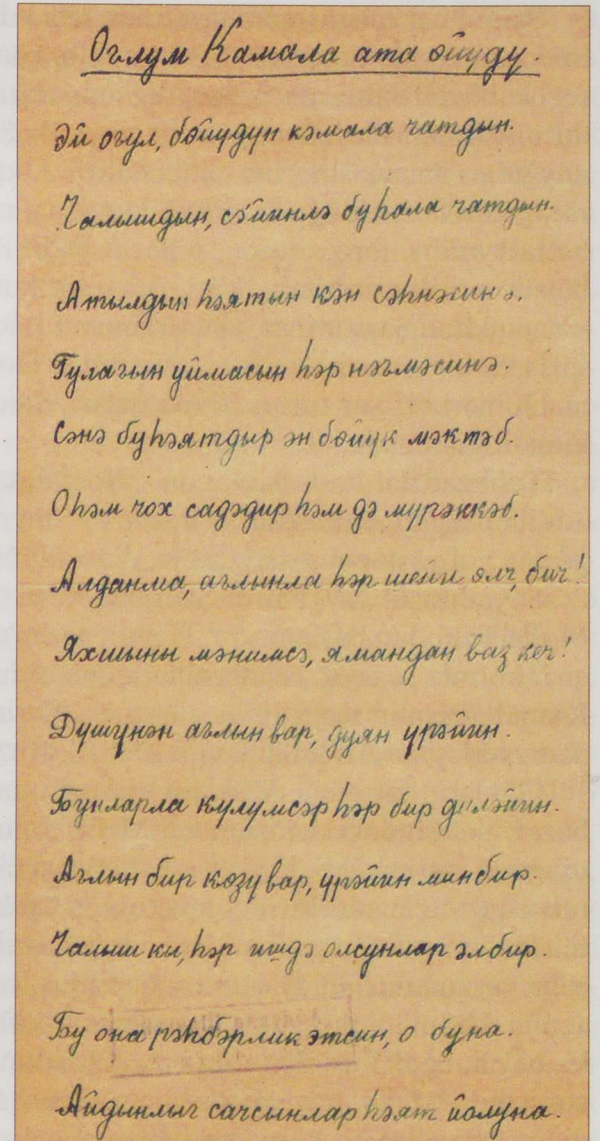 Оғлум Камала ата өйүдү.
Әй оғул, бөйүдүн кәмала чатдын.
Чалышдын, сә'йинлә бу һала чатдын.
Атылдын һәятын кэн сәһнәсинә.
Гулағын уймасын һәр нәғмәсинә.
Сәнә бу һәятдыр ән бөйүк мәктәб.
О һәм чох садәдир һәм дә мүрәккәб.
Алданма, ағлынла һәр шейи өлч, бич!
Яхшыны мәнимсә, ямандан ваз кеч!
Дүшүнән ағлын вар, дуян үрәйин.
Бунларла күлүмсәр һәр бир диләйин.
Ағлын бир көзү вар, үрәйин мин бир.
Чалыш ки, һәр ишдә олсунлар әлбир.
Бу она рәһбәрлик этсин, о буна.
Айдынлыг сачсынлар һәят йолуна.